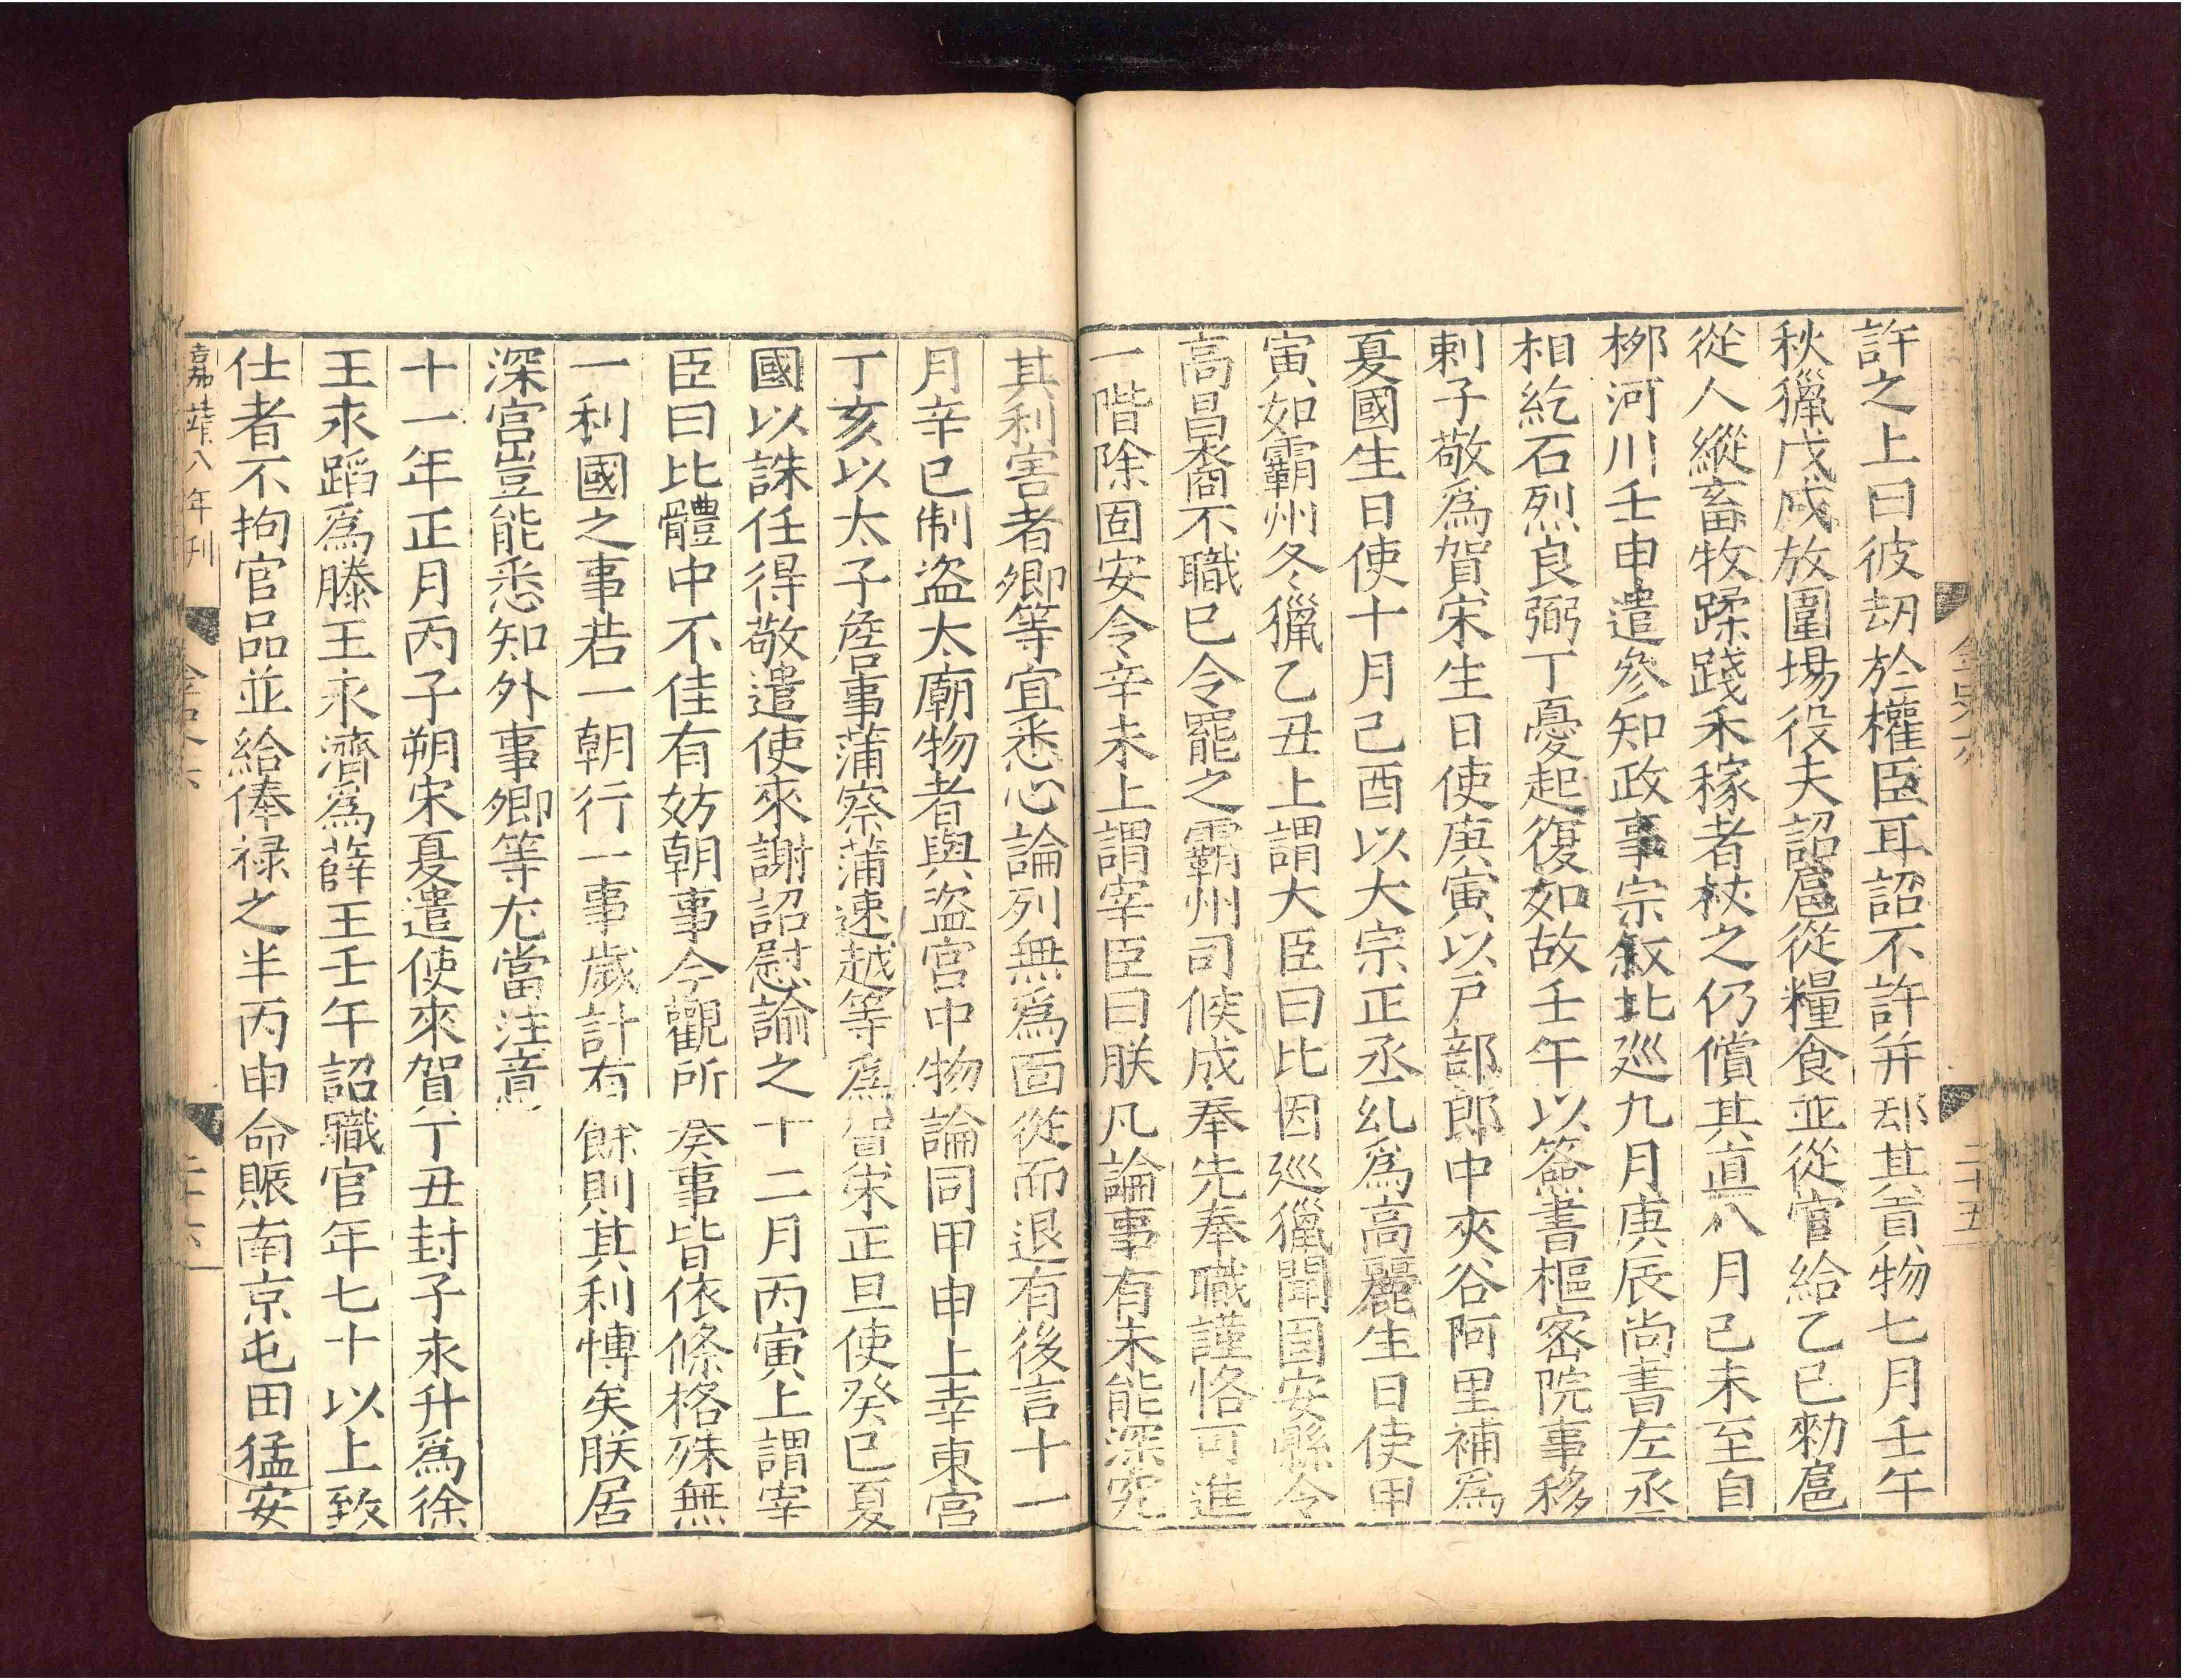 金史六
二十五
許之上曰彼刧於權臣耳詔不許并却其貢物七月壬午
秋獵戊戌放圍場役夫詔扈從糧食並從官給乙巳勑扈
從人縱畜牧蹂踐禾稼者杖之仍償其直八月己未至自
柳河川壬申遣參知政事宗敘北巡九月庚辰尚書左丞
相紇石烈良弼丁憂起復如故壬午以簽書樞密院事移
剌子敬爲賀宋生日使庚寅以戸部郎中夾谷阿里補爲
夏國生日使十月己酉以大宗正丞糺爲高麗生日使甲
寅如霸州冬獵乙丑上謂大臣曰比因巡獵聞固安縣令
高昌裔不職已令罷之霸州司候成奉先奉職謹恪可進
一階除固安令辛未上謂宰臣曰朕凡論事有未能深究
其利害者卿等宜悉心論列無爲面從而退有後言十一
月辛巳制盜太廟物者與盜宮中物論同甲申上幸東宮
丁亥以太子詹事蒲察蒲速越等爲賀宋正旦使癸巳夏
國以誅任得敬遣使來謝詔慰諭之十二月丙寅上謂宰
臣曰比體中不佳有妨朝事今觀所奏事皆依條格殊無
一利國之事若一朝行一事歲計有餘則其利慱矣朕居
深宮豈能悉知外事卿等尤當注意
十一年正月丙子朔宋夏遣使來賀丁丑封子永升爲徐
王永蹈爲滕王永濟爲薛王壬午詔職官年七十以上致
仕者不拘官品並給俸禄之半丙申命賑南京屯田猛安
嘉靖八年刊
金史六
二十六